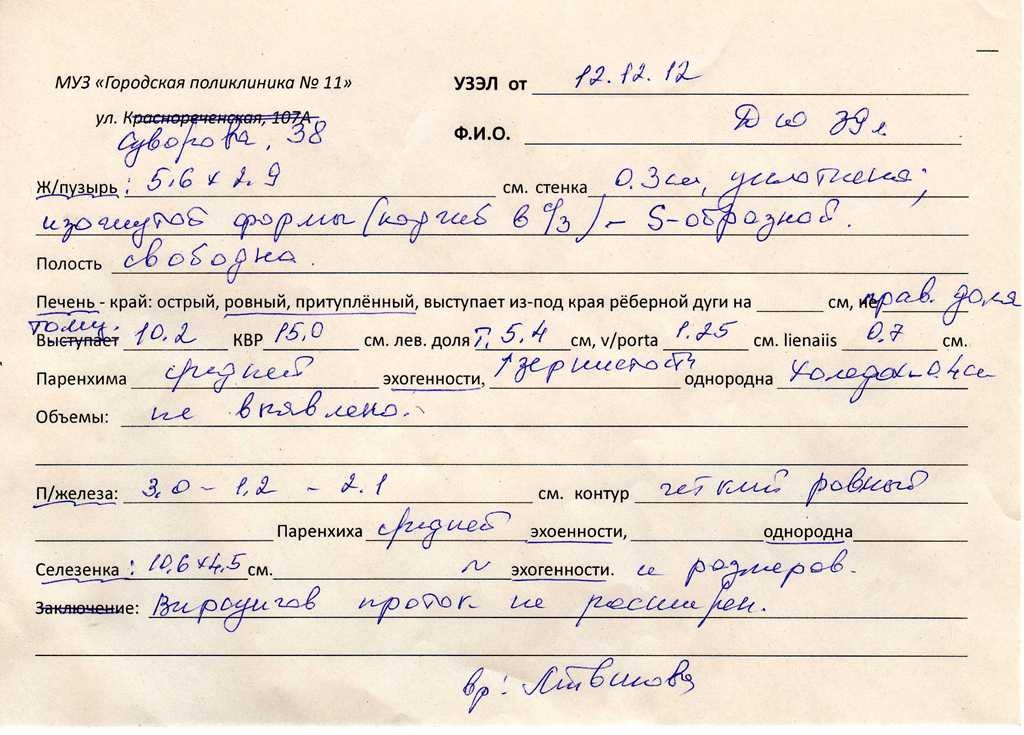 МУЗ «Городская поликлиника № 11» УЗЭЛ от 12.12.12
ул. Краснореченская, 107А
Суворова, 38 Ф.И.О. 39 л
Ж/пузырь : 5,6 х 2.9 см. стенка 0.3см, уплотнена;
изогнутой формы (перегиб в с/з) – S-образной.
Полость свободна.
Печень - край: острый, ровный, притуплённый, выступает из-под края рёберной дуги на см, не прав. доля
Выступает толщ. 10.2 КВР 15,0 см. лев. доля т. 5,4 см, v/porta 1.25 см. lienaiis 0.7 см.
Паренхима средней эхогенности, ↑зернистость однородна Холедох – 0.4см
Объемы: не выявлено.
П/железа: 3,0 – 1,2 – 2.1 см. контур четкий ровный
Паренхиха средней эхоенности, однородна
Селезенка : 10,6 х 4,5 см. ~ эхогенности. и размеров.
Заключение: Вирсунгов проток не расширен.
вр: